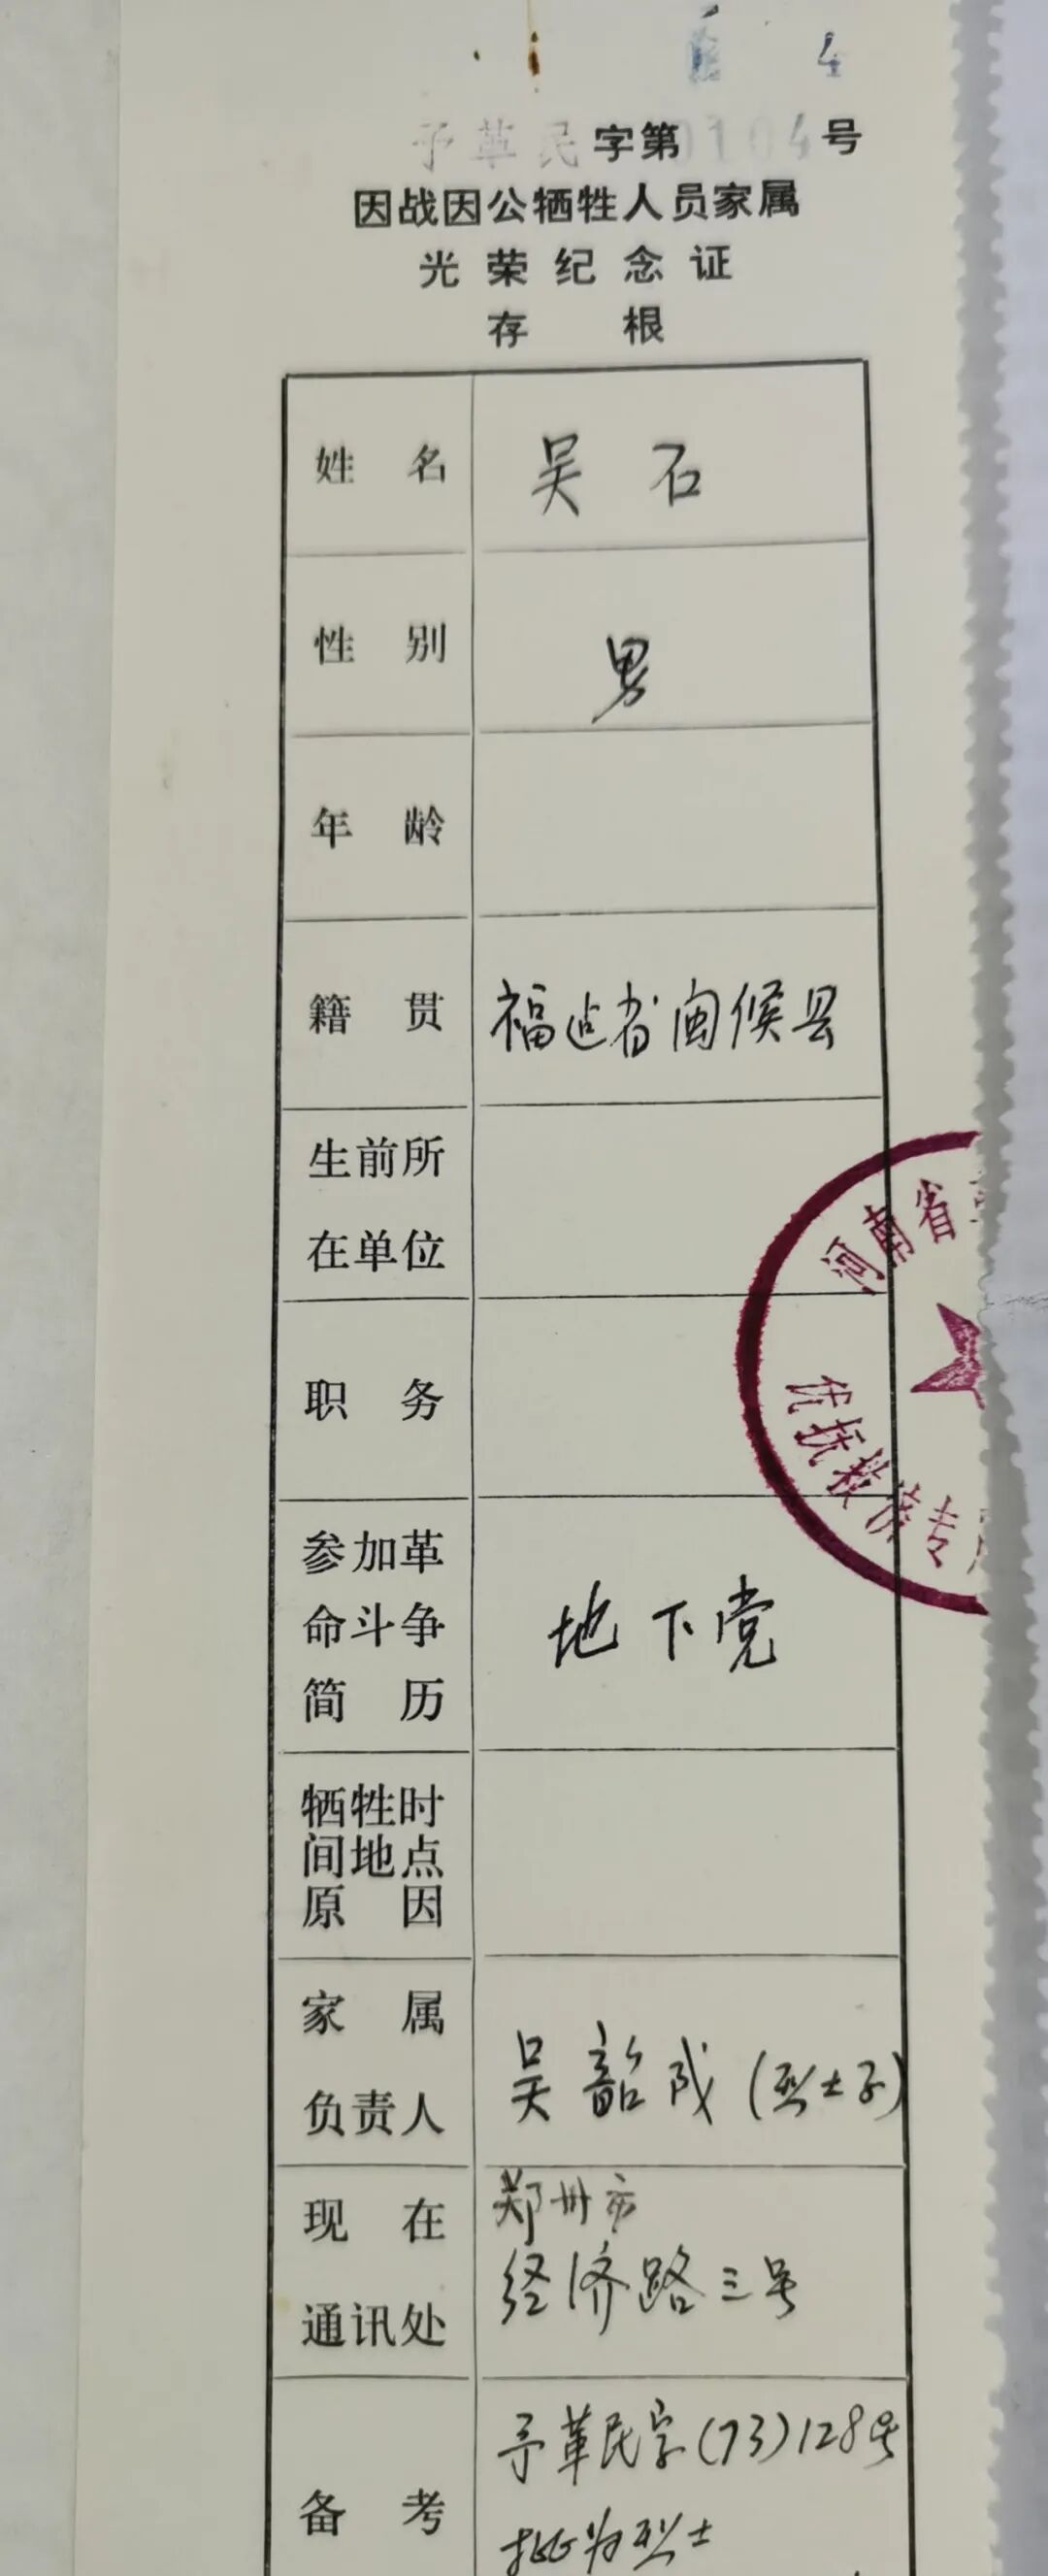 4
予革民字第0104号
因战因公牺牲人员家属
光荣纪念证
存根
姓名 吴石
性别 男
年龄
籍贯 福建省闽候县
生前所
在单位
职务
河南省
优抚救济专
参加革
命斗争
简历
地下党
牺牲时
间地点
原因
家属
负责人
吴韶成(烈士子)
现在
通讯处
郑州市
经济路三号
备考
予革民字(73)128号
批为烈士